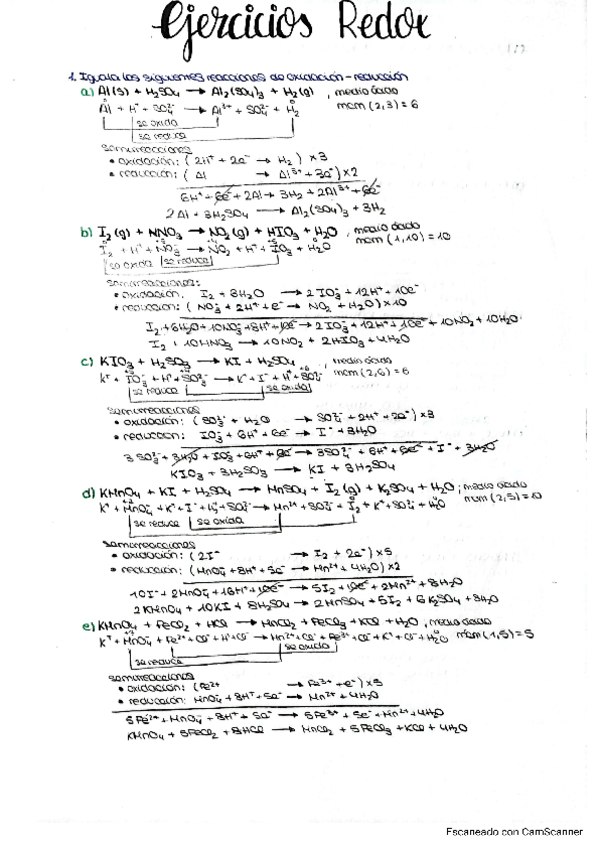 Ejercicios Redox
1. Iguala las siguientes reacciones de oxidación-reducción
a) Al(s) + H₂SO₄ → Al₂(SO₄)₃ + H₂(g) , medio ácido
Al + H⁺ + SO₄²⁻ → Al³⁺ + SO₄²⁻ + H₂ mcm (2,3) = 6
se oxida
se reduce
semirreacciones
• oxidación: (2H⁺ + 2e⁻ → H₂) x3
• reducción: (Al → Al³⁺ + 3e⁻) x2
6H⁺ + 6e⁻ + 2Al → 3H₂ + 2Al³⁺ + 6e⁻
2Al + 3H₂SO₄ → Al₂(SO₄)₃ + 3H₂
b) I₂(g) + HNO₃ → NO₂(g) + HIO₃ + H₂O , medio ácido
I₂ + H⁺ + NO₃⁻ → NO₂ + H⁺ + IO₃⁻ + H₂O mcm (1,10) = 10
se oxida se reduce
semirreacciones:
• oxidación: I₂ + 6H₂O → 2IO₃⁻ + 12H⁺ + 10e⁻
• reducción: (NO₃⁻ + 2H⁺ + e⁻ → NO₂ + H₂O) x10
I₂ + 6H₂O + 10NO₃⁻ + 8H⁺ + 10e⁻ → 2IO₃⁻ + 12H⁺ + 10e⁻ + 10NO₂ + 10H₂O
I₂ + 10HNO₃ → 10NO₂ + 2HIO₃ + 4H₂O
c) KIO₃ + H₂SO₃ → KI + H₂SO₄ , medio ácido
K⁺ + IO₃⁻ + H⁺ + SO₃²⁻ → K⁺ + I⁻ + H⁺ + SO₄²⁻ mcm (2,6) = 6
se reduce se oxida
semirreacciones
• oxidación: (SO₃²⁻ + H₂O → SO₄²⁻ + 2H⁺ + 2e⁻) x3
• reducción: IO₃⁻ + 6H⁺ + 6e⁻ → I⁻ + 3H₂O
3SO₃²⁻ + 3H₂O + IO₃⁻ + 6H⁺ + 6e⁻ → 3SO₄²⁻ + 6H⁺ + 6e⁻ + I⁻ + 3H₂O
KIO₃ + 3H₂SO₃ → KI + 3H₂SO₄
d) KMnO₄ + KI + H₂SO₄ → MnSO₄ + I₂(g) + K₂SO₄ + H₂O ; medio ácido
K⁺ + MnO₄⁻ + K⁺ + I⁻ + H⁺ + SO₄²⁻ → Mn²⁺ + SO₄²⁻ + I₂ + K⁺ + SO₄²⁻ + H₂O mcm (2,5) = 10
se reduce se oxida
semirreacciones
• oxidación: (2I⁻ → I₂ + 2e⁻) x5
• reducción: (MnO₄⁻ + 8H⁺ + 5e⁻ → Mn²⁺ + 4H₂O) x2
10I⁻ + 2MnO₄⁻ + 16H⁺ + 10e⁻ → 5I₂ + 10e⁻ + 2Mn²⁺ + 8H₂O
2KMnO₄ + 10KI + 8H₂SO₄ → 2MnSO₄ + 5I₂ + 6K₂SO₄ + 8H₂O
e) KMnO₄ + FeCl₂ + HCl → MnCl₂ + FeCl₃ + KCl + H₂O , medio ácido
K⁺ + MnO₄⁻ + Fe²⁺ + Cl⁻ + H⁺ + Cl⁻ → Mn²⁺ + Cl⁻ + Fe³⁺ + Cl⁻ + K⁺ + Cl⁻ + H₂O mcm (1,5) = 5
se oxida
se reduce
semirreacciones
• oxidación: (Fe²⁺ → Fe³⁺ + e⁻) x5
• reducción: MnO₄⁻ + 8H⁺ + 5e⁻ → Mn²⁺ + 4H₂O
5Fe²⁺ + MnO₄⁻ + 8H⁺ + 5e⁻ → 5Fe³⁺ + 5e⁻ + Mn²⁺ + 4H₂O
KMnO₄ + 5FeCl₂ + 8HCl → MnCl₂ + 5FeCl₃ + KCl + 4H₂O
Escaneado con CamScanner